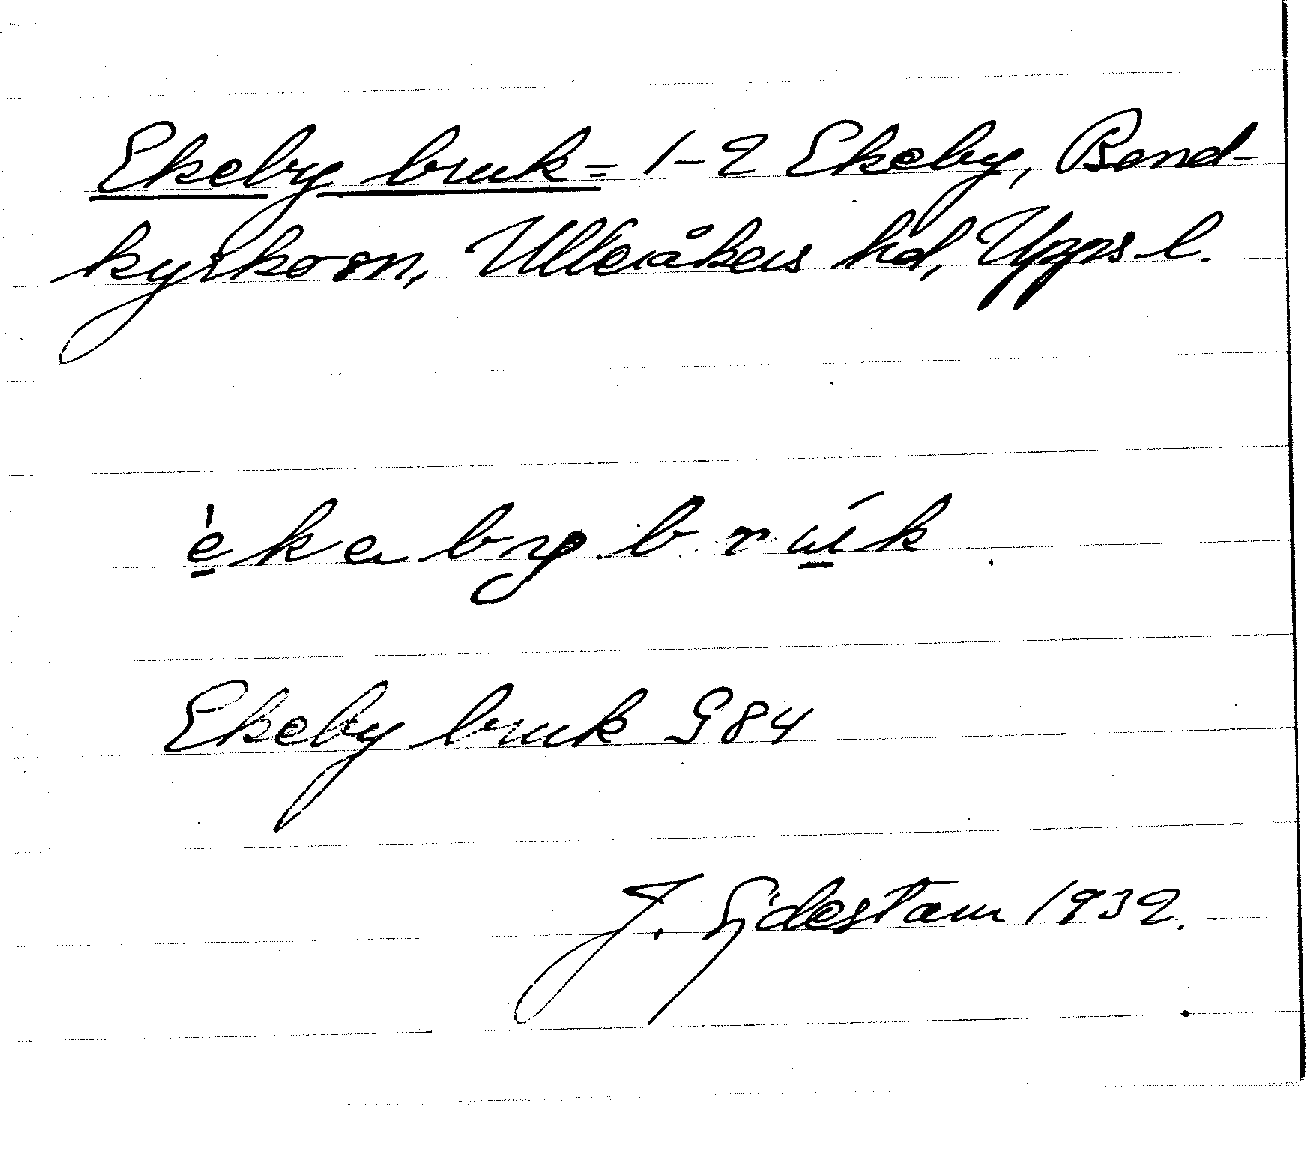 Ekeby bruk = 1-2 Ekeby, Bond-
kyrko sn, Ulleråkers hd, Upps l.
èkabybrúk
Ekeby bruk G84
J. Sjdestam 1932.